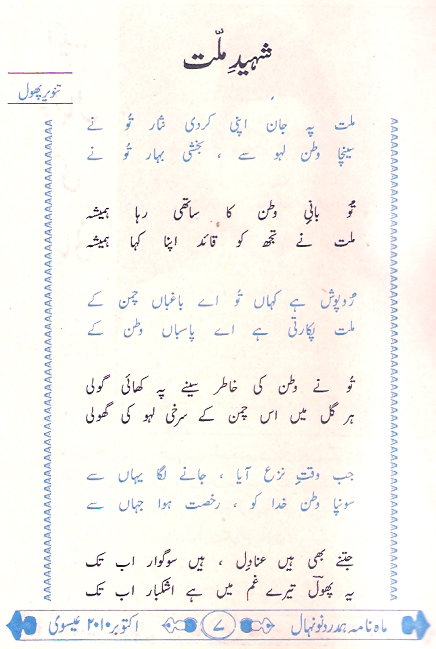 شہیدِ ملّت
تنویر پھول
ملت پہ جان اپنی کردی نثار تُو نے
سینچا وطن لہو سے ، بخشی بہار تُو نے
تُو بانیِ وطن کا ساتھی رہا ہمیشہ
ملت نے تجھ کو قائد اپنا کہا ہمیشہ
رُوپوش ہے کہاں تُو اے باغباں چمن کے
ملت پکارتی ہے اے پاسباں وطن کے
تُو نے وطن کی خاطر سینے پہ کھائی گولی
ہر گل میں اس چمن کے سرخی لہو کی گھولی
جب وقتِ نزع آیا ، جانے لگا یہاں سے
سونپا وطن خدا کو ، رخصت ہوا جہاں سے
جتنے بھی ہیں عنادِل ، ہیں سوگوار اب تک
یہ پھولؔ تیرے غم میں ہے اشکبار اب تک
ماہ نامہ ہمدرد نونہال ۷ اکتوبر ۲۰۱۰ عیسوی